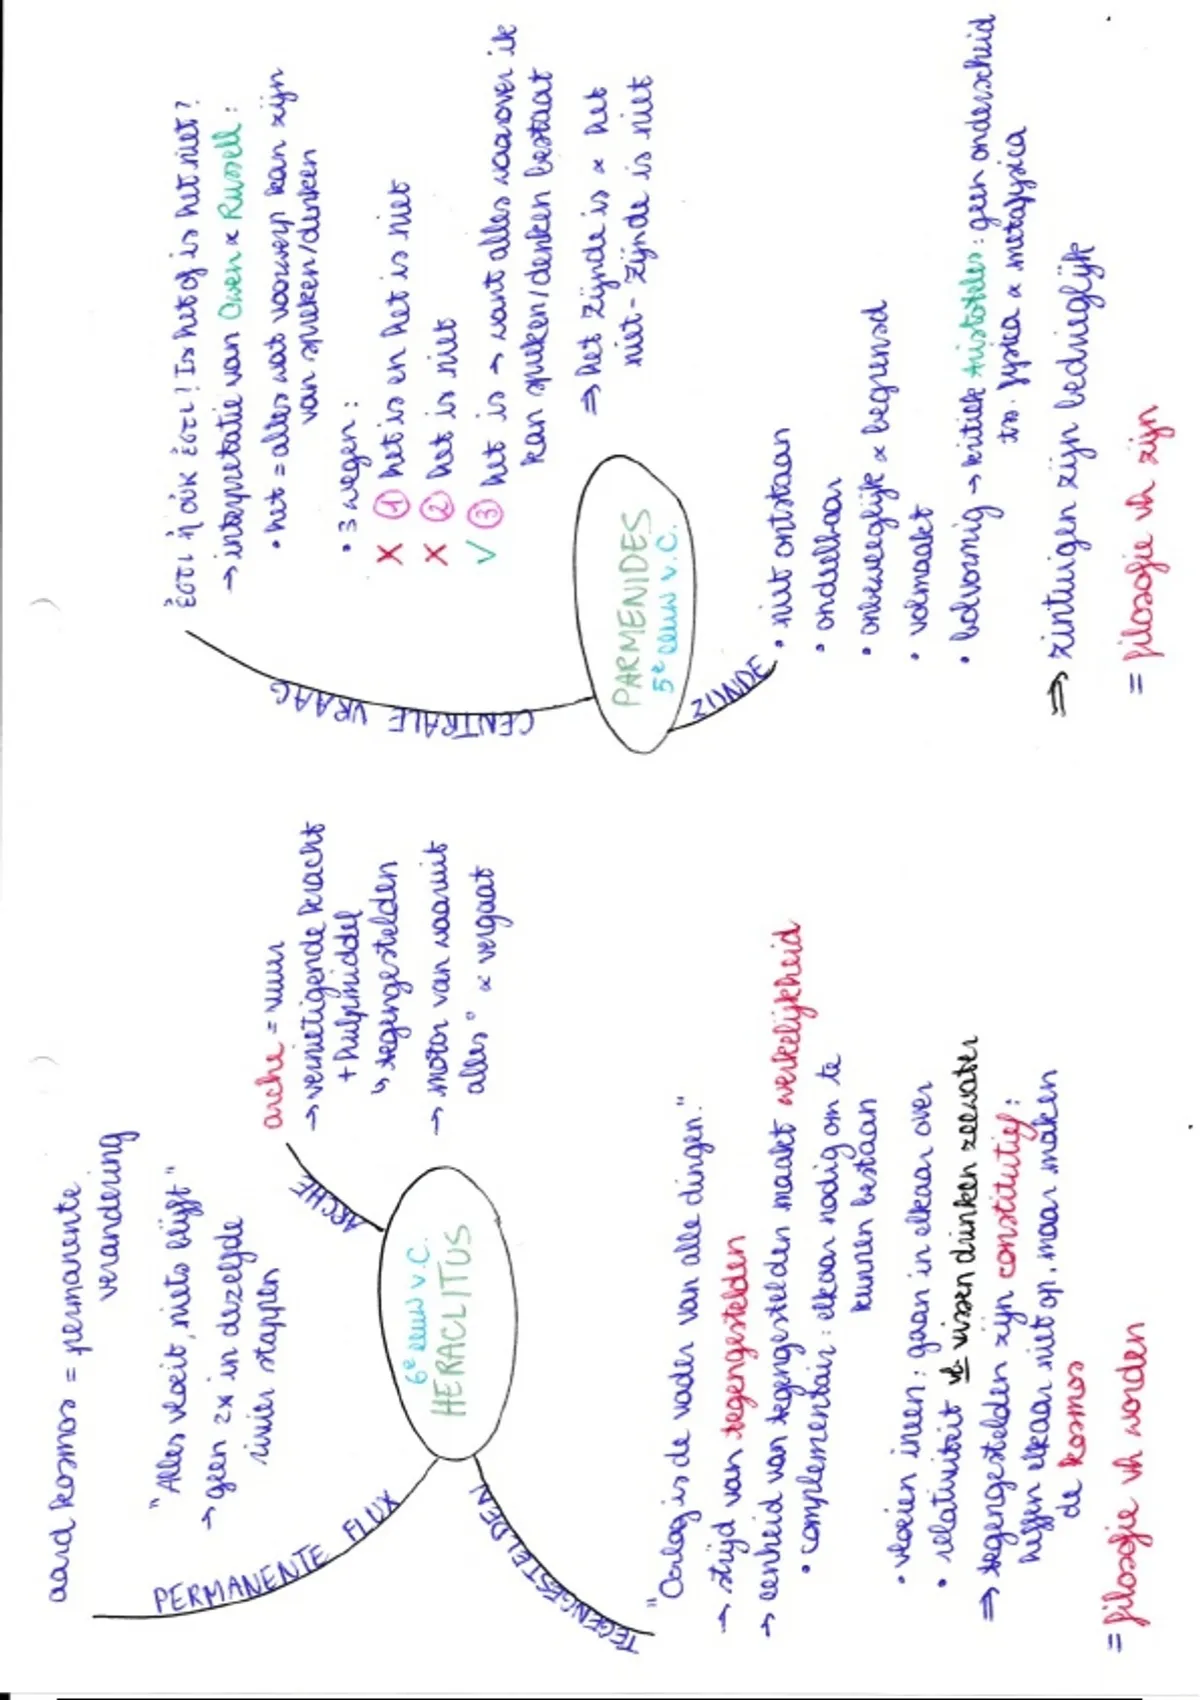 PERMANENTE FLUX
aard kosmos = permanente
verandering
"Alles vloeit, niets blijft"
→ geen 2x in dezelfde
rivier stappen
ARCHE
arche = vuur
→ vernietigende kracht
+ hulpmiddel
↳ tegengestelden
→ motor van waaruit
alles° ∝ vergaat
6e eeuw v.C.
HERACLITUS
TEGENGESTELDEN
"Oorlog is de vader van alle dingen."
→ strijd van tegengestelden
→ eenheid van tegengestelden maakt werkelijkheid
• complementair: elkaar nodig om te
kunnen bestaan
• vloeien ineen: gaan in elkaar over
• relativiteit vb. vissen drinken zeewater
⇒ tegengestelden zijn constitutief:
heffen elkaar niet op, maar maken
de kosmos
= filosofie vh worden
CENTRALE VRAAG
ἔστι ἢ οὐκ ἔστι? Is het of is het niet?
→ interpretatie van Owen ∝ Russell:
• het = alles wat voorwerp kan zijn
van spreken/denken
• 3 wegen:
X ① het is en het is niet
X ② het is niet
√ ③ het is → want alles waarover ik
kan spreken/denken bestaat
⇒ het zijnde is ∝ het
niet-zijnde is niet
PARMENIDES
5e eeuw v.C.
ZIJNDE
• niet ontstaan
• ondeelbaar
• onbeweeglijk ∝ begrensd
• volmaakt
• bolvormig → kritiek Aristoteles: geen onderscheid
ts. fysica ∝ metafysica
⇒ zintuigen zijn bedrieglijk
= filosofie vh zijn